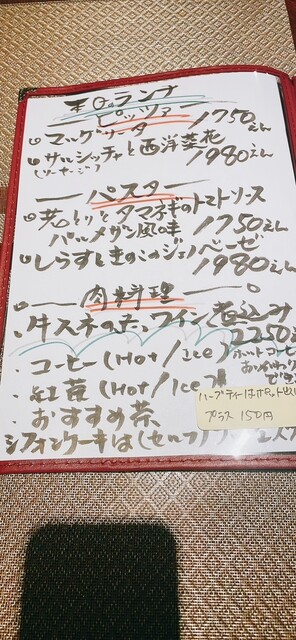 ピッツァ
マルゲリータ 1750えん
サルシッチャと西洋菜花
(ソーセージ) 1980えん
パスタ
若とりとタマネギのトマトソース
パルメザン風味 1750えん
しらすときのこのジェノベーゼ
1980えん
肉料理
牛スネの赤ワイン煮込み
2250
コーヒー(Hot/ice)
紅茶(Hot/Ice)
おすすめ茶
ハーブティーはポット
プラス150円
シフォンケーキは(セルフ)